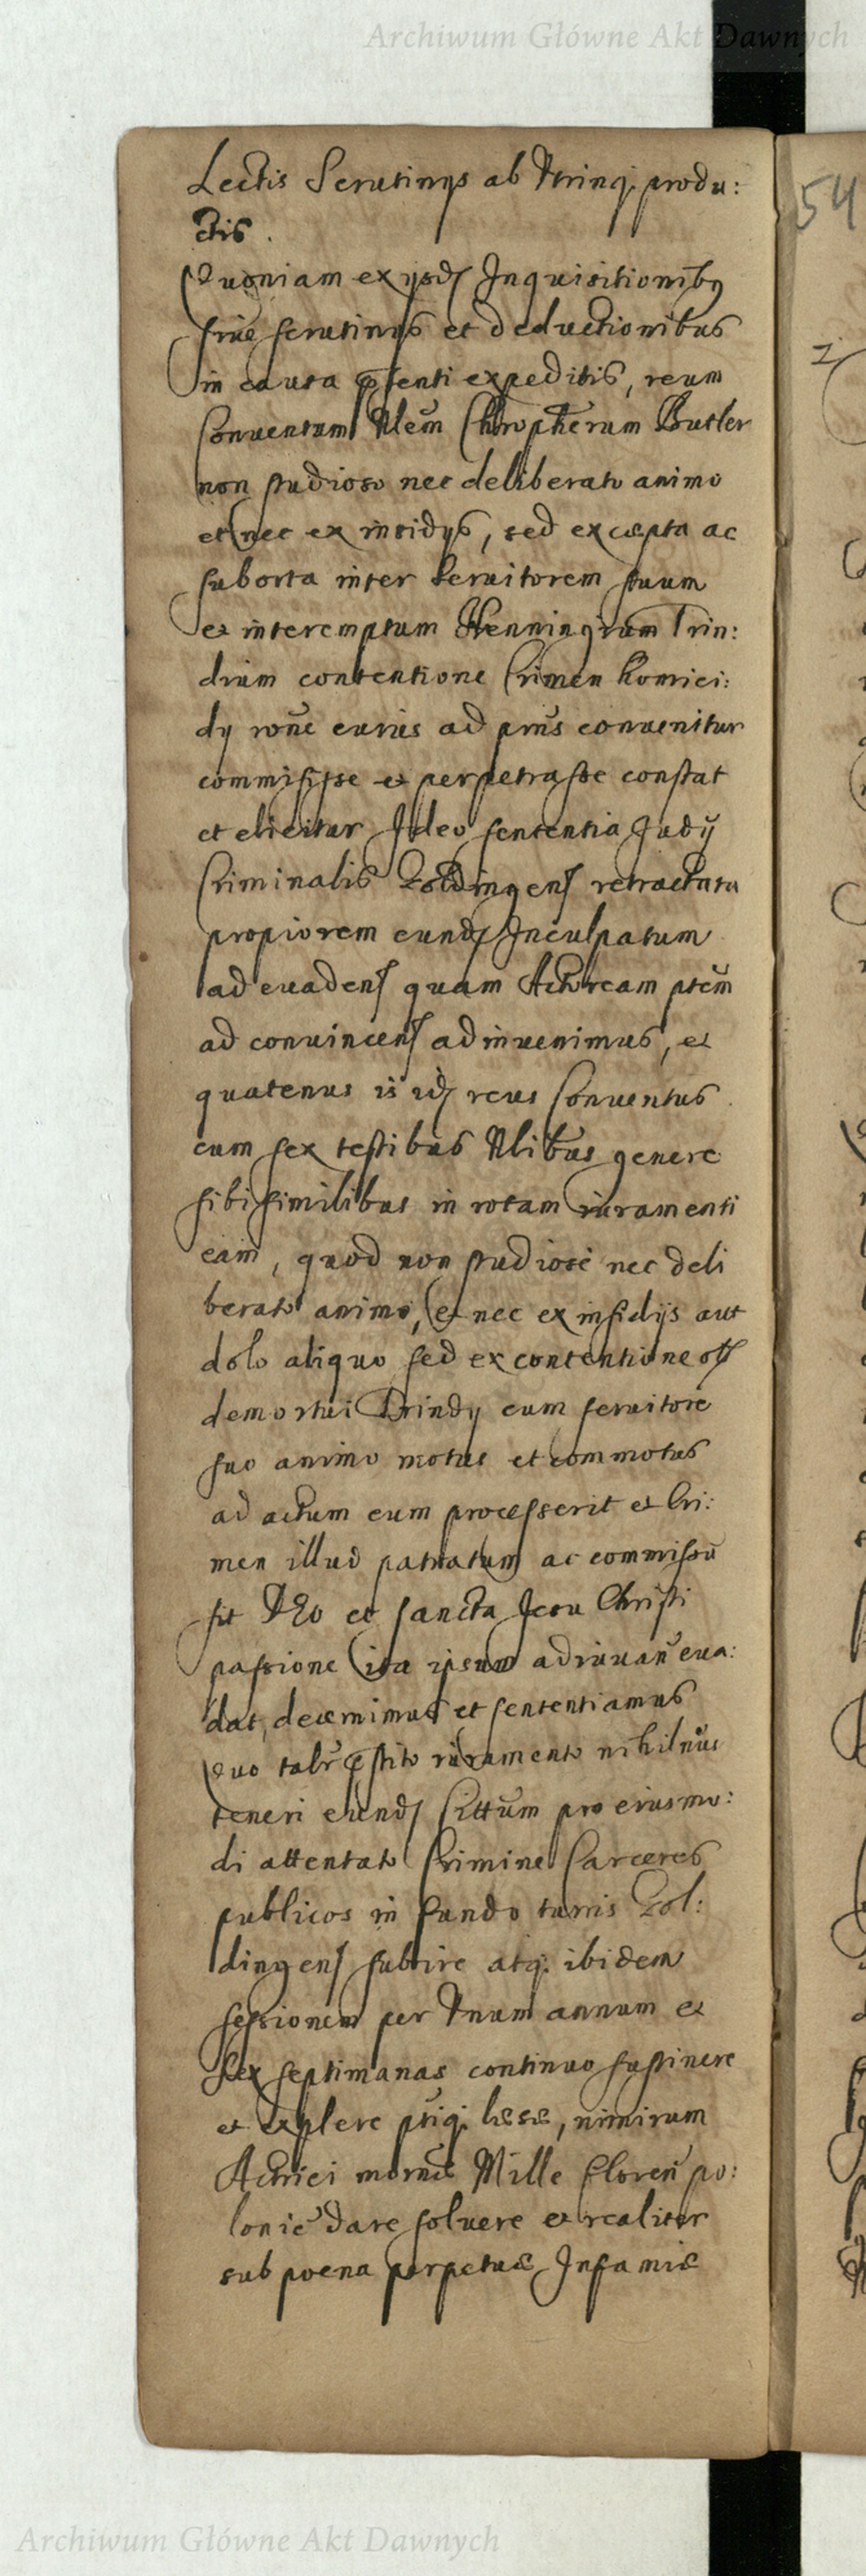 Archiwum Główne Akt Dawnych
54
Lectis Scrutinijs ab Vtrinq. produ:
ctis.
Quoniam ex ijsd Inquisitionibq
siue scrutinijs et deductionibus
in causa pñti expeditis, reum
Conuentum Nlem Chrōpherum Butler
non studioso nec deliberato animo
et nec ex insidijs, sed ex cæpta ac
suborta inter Seruitorem suum
et interemptum Henningium Trin:
dium contentione Crimen homici:
dij rõne cuius ad pñs conuenitur
commisisse et perpetrasse constat
et elicitur Ideo sententia Judij
Criminalis Goldingens retractata
propiorem eund Inculpatum
ad euadend quam Actoream ptem
ad conuincend adinuenimus, et
quatenus is id reus Conuentus
cum sex testibus Nlibus genere
sibi similibus in rotam iuramenti
eam, quod non studiose nec deli
berato animo, et nec ex insidijs aut
dolo aliquo sed ex contentione olf
demortui Trindij cum seruitore
suo animo motus et commotus
ad actum eum processerit et Cri:
men illud patratum ac commissũ
sit DEo et sancta Jesu Christi
passione ita ipsum adiuuañ eua:
dat, decernimus et sententiamus
Quo talr pstito iuramento nihilm̃us
teneri eund Cittum pro eiusmo:
di attentato Crimine Carceres
publicos in fundo turris Gol:
dingens subire atq. ibidem
sessionem per Vnum annum et
sex septimanas continuo sustinere
et explere ptiq. læsæ, nimirum
Actrici Mille floreñ po:
lonic dare soluere et realiter
sub poena perpetuæ Infamiæ
Archiwum Główne Akt Dawnych